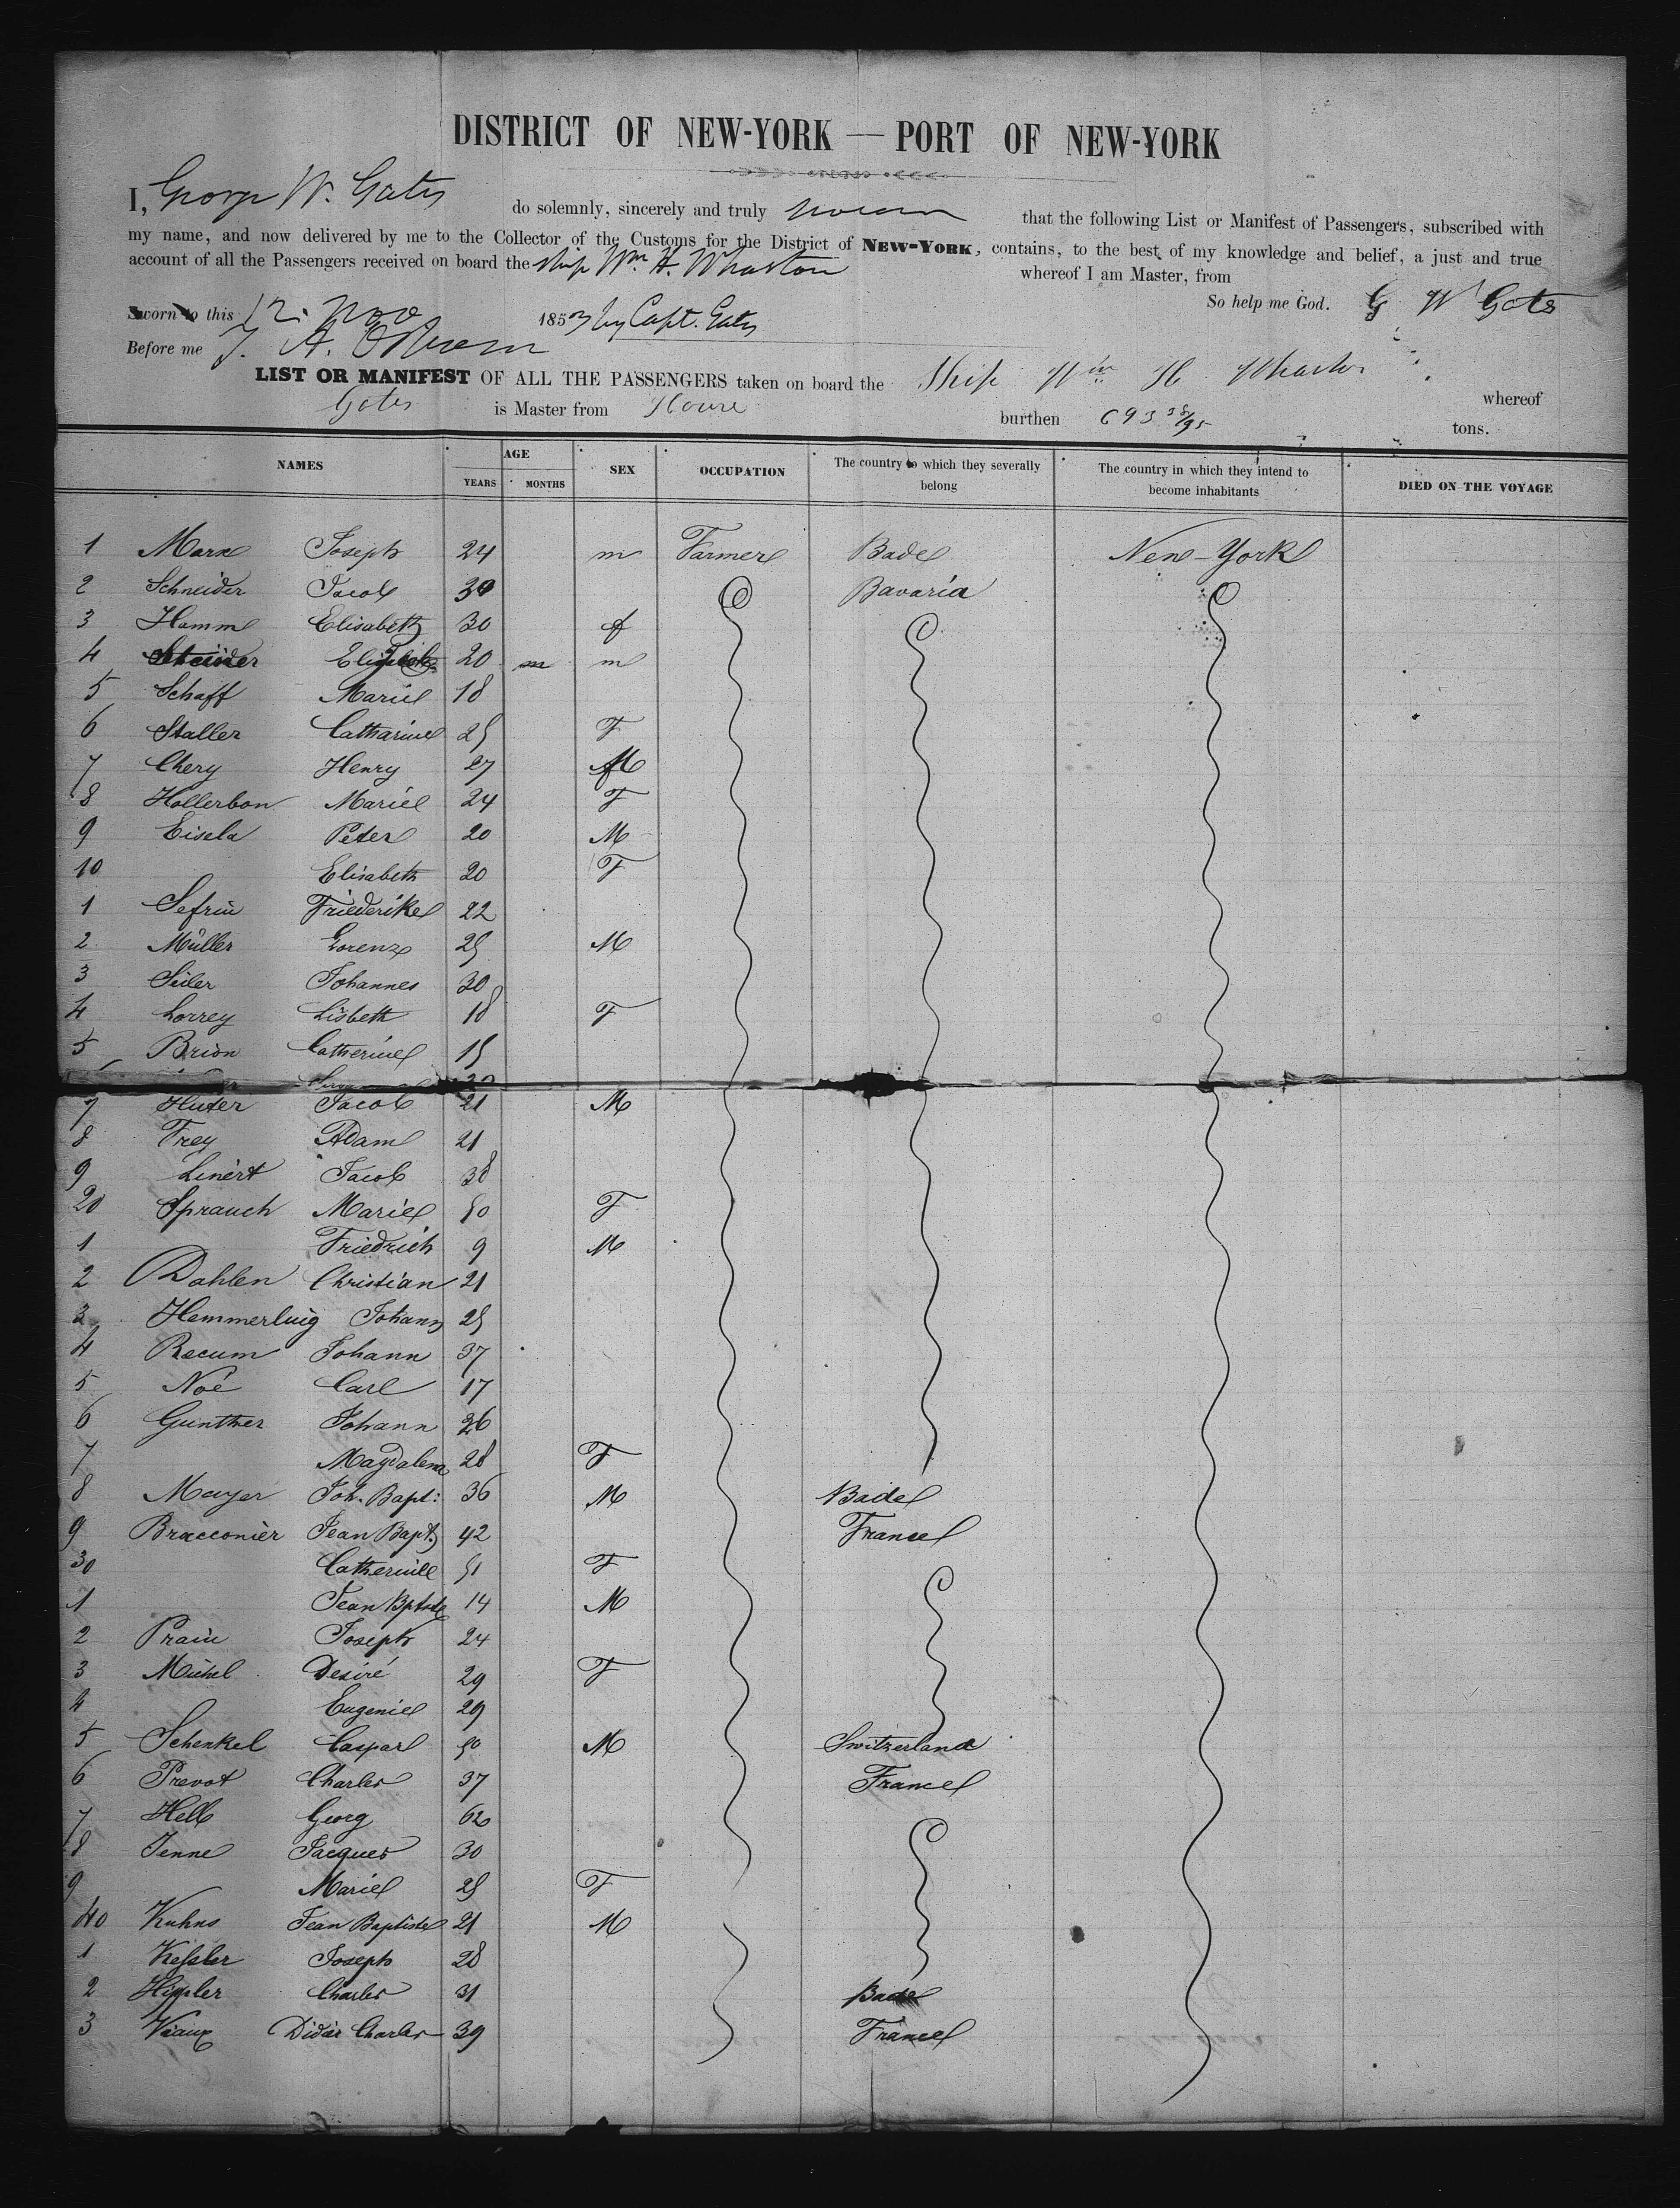 DISTRICT OF NEW-YORK — PORT OF NEW-YORK
I, George W. Gates do solemnly, sincerely and truly swear that the following List or Manifest of Passengers, subscribed with
my name, and now delivered by me to the Collector of the Customs for the District of NEW-YORK, contains, to the best of my knowledge and belief, a just and true
account of all the Passengers received on board the ship Wm. H. Wharton whereof I am Master, from
So help me God. G W Gates
Sworn to this 12. Nov 1853 by Capt. Gates
Before me
LIST OR MANIFEST OF ALL THE PASSENGERS taken on board the Ship Wm H Wharton whereof
Gates is Master from Havre burthen 693 38/95 tons.
NAMES AGE YEARS MONTHS SEX OCCUPATION The country to which they severally belong The country in which they intend to become inhabitants DIED ON THE VOYAGE
1 Marx Joseph 24 m Farmer Bade New-York
2 Schneider Jacob 30 Bavaria
3 Hamm Elisabeth 30 f
4 20 m m
5 Schaff Marie 18
6 Staller Catharine 25 F
7 Chery Henry 27 M
8 Hollerbon Marie 24 F
9 Eisela Peter 20 M
10 Elisabeth 20 F
1 Sefrin Friederike 22
2 Müller Lorenz 25 M
3 Seiler Johannes 30
4 Lorrey Lisbeth 18 F
5 Brion Catherine 15
7 Huter Jacob 21 M
8 Frey Adam 21
9 Linert Jacob 38
20 Sprauch Marie 50 F
1 Friedrich 9 M
2 Dahlen Christian 21
3 Hemmerluig Johann 25
4 Recum Johann 37
5 Noé Carl 17
6 Gunther Johann 26
7 Magdalena 28 F
8 Mayer Joh. Bapt: 36 M Bade
9 Bracconier Jean Bapt. 42 France
30 Catherine 51 F
1 Jean Bptste 14 M
2 Prain Joseph 24
3 Michel Desiré 29 F
4 Eugenie 29
5 Schenkel Caspar 50 M Switzerland
6 Prevot Charles 37 France
7 Helb Georg 62
8 Jenne Jacques 30
9 Marie 25 F
40 Kuhns Jean Baptiste 21 M
1 Kessler Joseph 28
2 Hippler Charles 31 Bade
3 Viaux Didié Charles 39 France